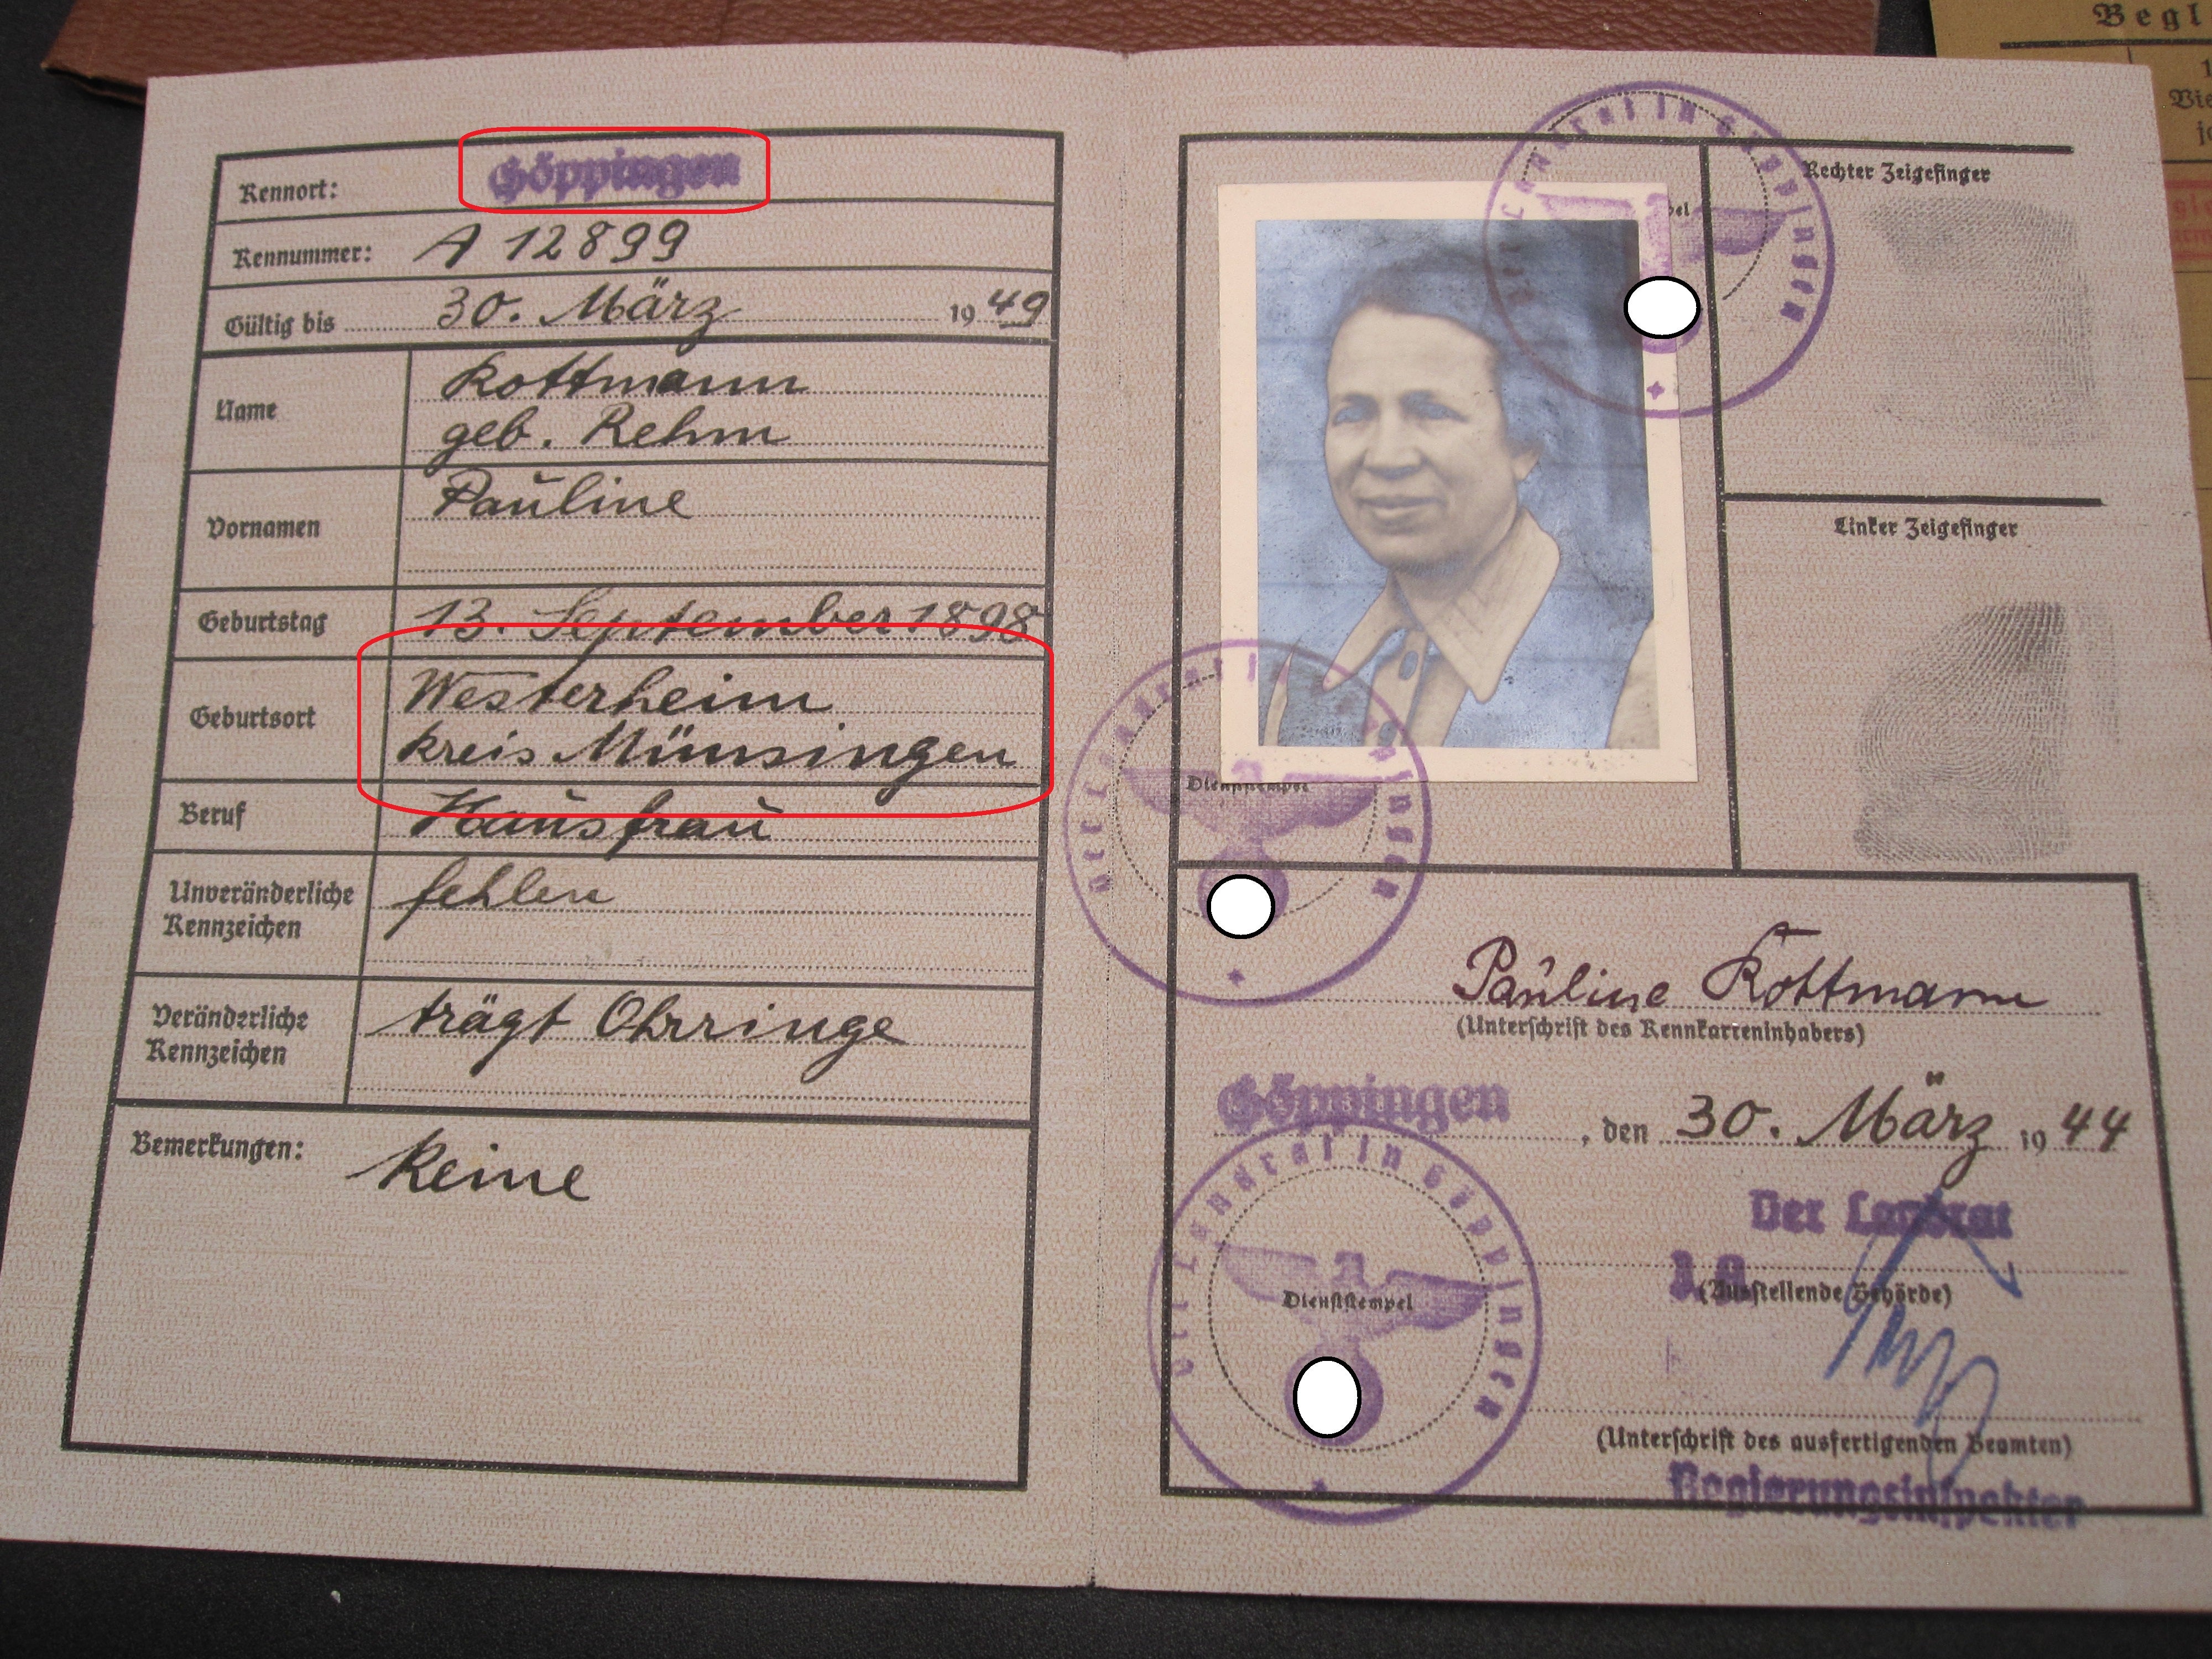 Kennort: Göppingen
Kennummer: A 12899
Gültig bis 30. März 1949
Name Kottmann
geb. Rehm
Vornamen Pauline
Geburtstag 13. September 1898
Geburtsort Westerheim
Kreis Münsingen
Beruf Hausfrau
Unveränderliche Kennzeichen fehlen
Veränderliche Kennzeichen trägt Ohrringe
Bemerkungen: Keine
Der Landrat in Göppingen
Rechter Zeigefinger
Linker Zeigefinger
Der Landrat in Göppingen
Dienststempel
Pauline Kottmann
(Unterschrift des Kennkarteninhabers)
Göppingen, den 30. März 1944
Der Landrat in Göppingen
Dienststempel
Der Landrat
(Ausstellende Behörde)
(Unterschrift des ausfertigenden Beamten)
Regierungsinspektor
Begl